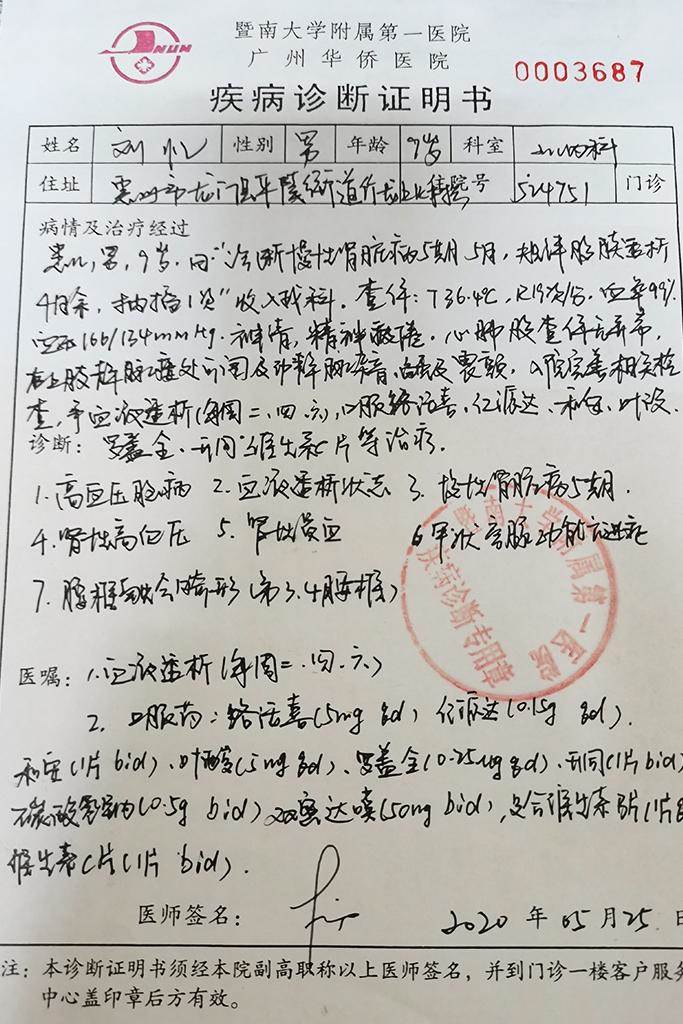 暨南大学附属第一医院
广州华侨医院
0003687
疾病诊断证明书
姓名 刘忆 性别 男 年龄 9岁 科室 内科
住址 惠州市龙门县平陵街道 住院号 524751 门诊
病情及治疗经过
患儿,男,9岁.因"诊断慢性肾脏病5期5月,规律腹膜透析
4月余,抽搐1次"收入我科.查体:T36.4℃,R19次/分,血氧99%
血压166/134mmHg.神清,精神疲倦.心肺腹查体无异常,
右上肢静脉瘘处可闻及动静脉杂音,触及震颤,入院完善相关检
查,予血液透析(每周二.四.六),口服络活喜、亿派达、叶酸、
诊断: 罗盖全、开同、维生素C片等治疗.
1.高血压脑病 2.血液透析状态 3.慢性肾脏病5期.
4.肾性高血压 5.肾性贫血 6.甲状旁腺功能亢进症
7.腰椎融合畸形(第3.4腰椎)
暨南大学附属第一医院
疾病诊断专用章
医嘱: 1.血液透析(每周二.四.六)
2.口服药:络活喜(5mg qd) 亿派达(0.15g qd).
(1片 bid)、叶酸(5mg qd)、罗盖全(0.25ug qd)、开同(1片 bid)
碳酸氢钠(0.5g bid) 双嘧达嗼(50mg bid),复合维生素B片(1片
维生素C片(1片 bid).
医师签名: 2020年05月25日
注:本诊断证明书须经本院副高职称以上医师签名,并到门诊一楼客户服务
中心盖印章后方有效。